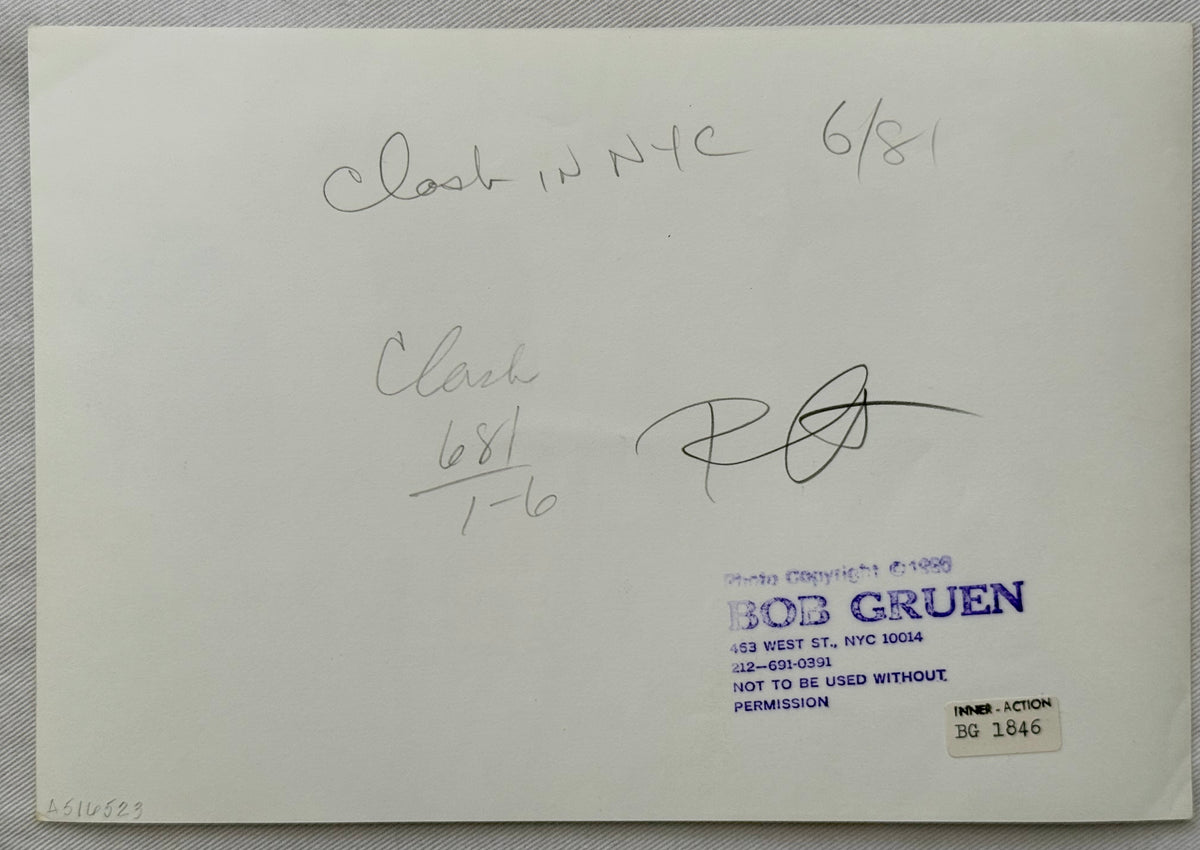 Clash IN NYC 6/81
Clash
681
1-6
Photo Copyright © 1986
BOB GRUEN
463 WEST ST., NYC 10014
212-691-0391
NOT TO BE USED WITHOUT
PERMISSION
INNER-ACTION
BG 1846
A516523